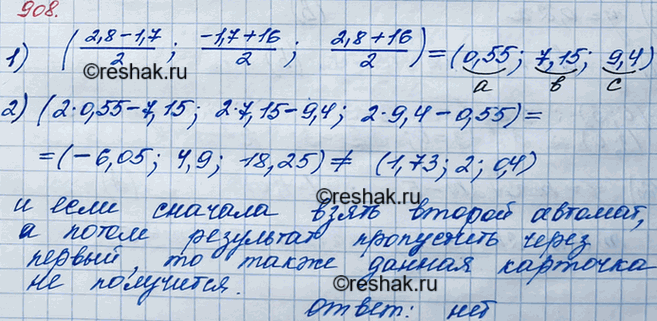 908.
1) (2,8-1,7/2; -1,7+16/2; 2,8+16/2)=(0,55; 7,15; 9,4)
©reshak.ru
a в с
2) (2·0,55-7,15; 2·7,15-9,4; 2·9,4-0,55)=
=(-6,05; 4,9; 18,25) ≠ (1,73; 2; 0,4)
©reshak.ru
и если сначала взять второй автомат,
а потом результат пропустить через
первый, то также данная карточка
не получится.
©reshak.ru
ответ: нет